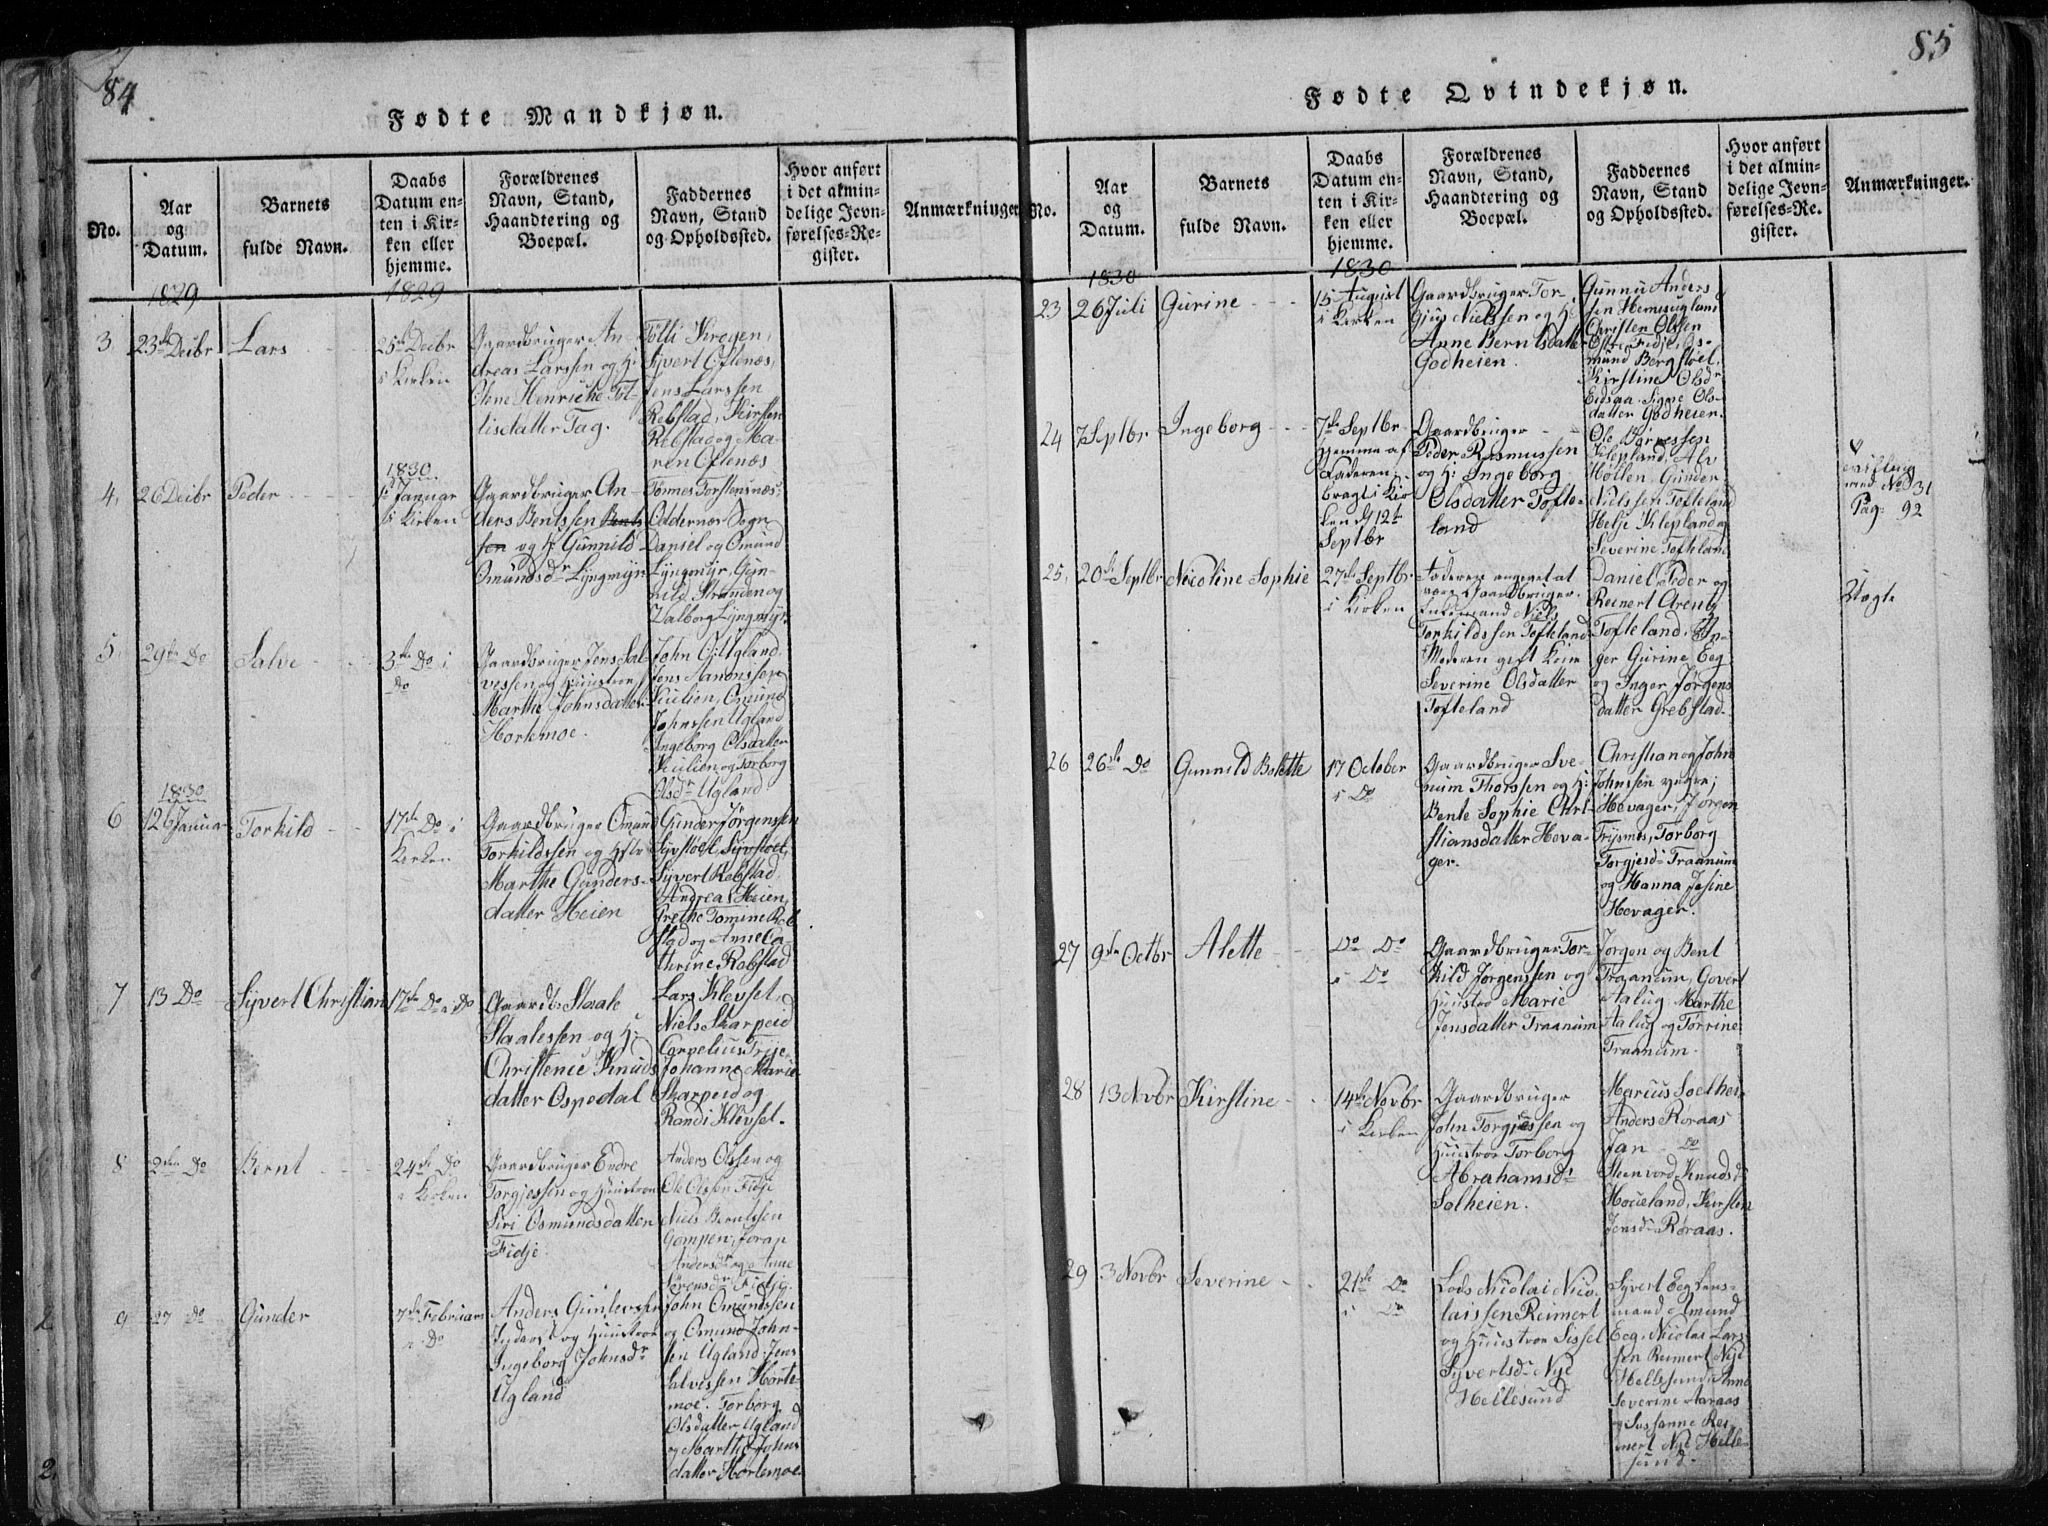 84
Fødte Mandkjøn.
No.
Aar
og
Datum.
Barnets
fulde Navn.
Daabs
Datum en-
ten i Kir-
ken eller
hjemme.
Forældrenes
Navn, Stand,
Haandtering og
Boepæl.
Faddernes
Navn, Stand
og Opholdssted.
Hvor anført
i det almin-
delige Jevn-
førelses-Re-
gister.
Anmærkninger
1829
1829
3
23de Decbr
Lars
25de Decbr
i Kirken
Gaardbruger An-
dreas Larssen og H:
Olene Henriche Tol-
lisdatter Tag.
Tolli Krogen,
Syvert Oftenæs,
Jens Larssen
Rebstad, Kirsten
Rebstad og Ma-
ren Oftenæs
4,
26 Decbr
Peder
1830
1ste Januar
i Kirken
Gaardbruger An-
ders Bentssen Bents
sen og H: Gunnild
Omundsdr Lyngmyr
Tønnes Torstensnæs
Oddernæs Sogn
Daniel og Omund
Lyngmyr, Gun-
nild Stranden og
Valborg Lyngmyr.
5,
29de Do
Salve
3de Do i
Do
Gaardbruger Jens Sal-
vessen og Huustroe
Marthe Johnsdatter
Hortemoe.
John O: Ugland,
Jens Aanonssen
Kuilien, Omund
Johnssen Ugland
Ingeborg Olsdatter
Kuilien og Torborg
Olsdr Ugland
1830
6
12 Januar
Torkild
17de Do i
Kirken
Gaardbruger Omund
Torkildssen og Hstr
Marthe Gunders-
datter Heien
Gunder Jørgenssen
Syvstoel, Syvstoel,
Syvert Rebstad
Andreas Heien,
Grethe Tomine Reb
stad og Anne Ca-
thrine Rebstad
7
13 Do
Syvert Christian
17de Do i Do
Gaardb: Staale
Staalessen og H:
Christence Knuds
datter Ospedal
Lars Klevset,
Niels Skarpeid
Cornelius Trye,
Johanne Marie
Skarpeid og
Randi Klevset.
8
Do
Bernt
24de Do
i Kirken
Gaardbruger Endre
Torgjessen og Huustroe
Siri Osmundsdatter
Fidje
Anders Olssen og
Ole Olssen Fidje
Niels Berntssen
Gompen, Joran
Andersdr og Anne
Sørensdr Fidje.
9
27 Do
Gunder
7de Februar
i Do
Anders Gunlevssen
og Huustroe
Ingeborg Johnsdr
Ugland
John Omundssen
og Omund John-
sen Ugland, Jens
Salvessen Horte-
moe, Torborg
Olsdatter Ugland
og Marthe Johns
datter Hortemoe.
85
Fødte Qvindekjøn.
No.
Aar
og
Datum.
Barnets
fulde Navn.
Daabs
Datum en-
ten i Kir-
ken eller
hjemme.
Forældrenes
Navn, Stand,
Haandtering og
Boepæl.
Faddernes
Navn, Stand
og Opholdssted.
Hvor anført
i det almin-
delige Jevn-
førelses-Re-
gister.
Anmærkninger.
1830
1830
23
26 Juli
Gurine
15 August
i Kirken
Gaardbruger Tor-
gjus Nielssen og H:
Anne Berntsdatter
Godheien.
Gunnu Anders
sen Hemisugland
Christen Olssen
Øftre Fidje, Os-
mund Bergstøel,
Kirstine Olsdr
Eidsaa, Signe Ols-
datter Godheien.
24
7 Septbr
Ingeborg
7de Septbr
hjemme af
Faderen,
bragt i Kir
ken d 12te
Septbr
Gaardbruger
Peder Rasmussen
og H: Ingeborg
Olsdatter Tofte-
land
Ole Børressen
Klepland, Alv
Høllen, Gunder
Nielssen Tofteland
Helje Klepland og
Severine Tofteland
med No 31
Pag: 92
25,
20de Septbr
Nicoline Sophie
27de Septbr
i Kirken
Faderen angivet at
være Gaardbruger
Enkemand Niels
Torkildssen Tofteland
Moderen gift Kone
Severine Olsdatter
Tofteland
Daniel, Peder og
Reinert Arentz
Tofteland, In-
ger Gurine Eeg
og Inger Jørgens
datter Grebstad.
Uægte
26
26de Do
Gunnild Bolette
17 October
i Do
Gaardbruger Sve-
num Thorssen og H:
Bente Sophie Chri-
stiansdatter Hova-
ger.
Christian og John
Johnssen
Hovager, Jørgen
Trysnes, Torborg
Torgjesdr Traanum
og Hanna Josine
Hovager.
27
9de Octbr
Alette
Do Do
i Do
Gaardbruger Tor-
kild Jørgenssen og
Huustroe Marie
Jensdatter Traanum
Jørgen og Bent
Traanum, Govert
Aalug, Marthe
Aalug og Torrine
Traanum.
28
13 Novbr
Kirstine
14de Novbr
i Kirken
Gaardbruger
John Torgjessen og
Huustroe Torborg
Abrahamsdr
Solheien.
Marcus Soelhei
Anders Røraas
Jan Do
Steenvord, Knudsdr
Houeland, Kirsten
Jensdr Røraas.
29
3 Novbr
Severine
21de Do
i Do
Lods Nicolai Nico-
laissen Reimert
og Huustroe Sissel
Syvertsdr Nye
Hellesund
Syvert Eeg Lens-
mand, Omund
Eeg, Nicolai Lars-
sen Reimert Nye
Hellesund, Anne
Severine Aaraas
og Susanne Rei-
mert Nye Helle-
sund.